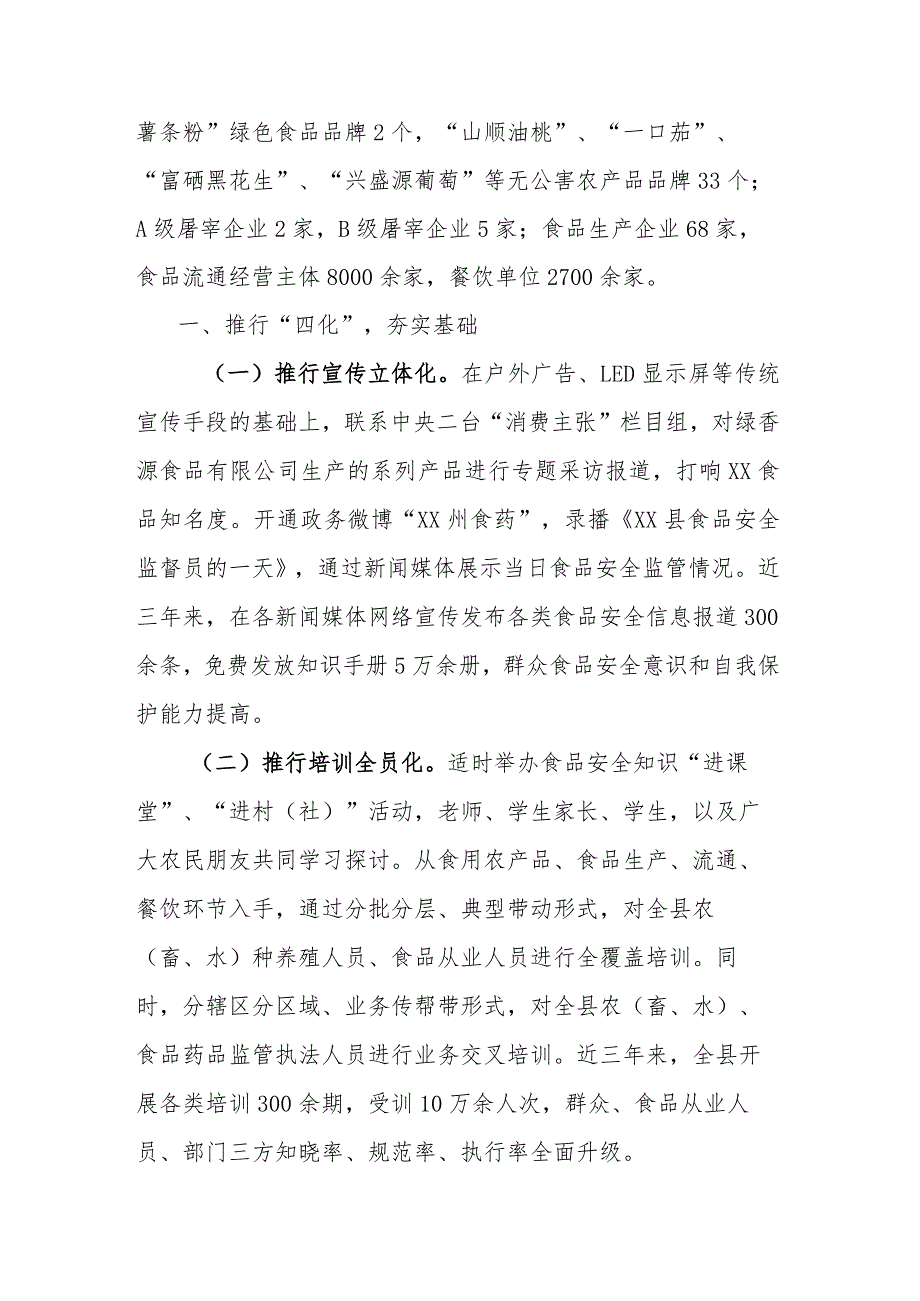 薯条粉”绿色食品品牌2个，“山顺油桃”、“一口茄”、
“富硒黑花生”、“兴盛源葡萄”等无公害农产品品牌33个；
A级屠宰企业2家，B级屠宰企业5家；食品生产企业68家，
食品流通经营主体8000余家，餐饮单位2700余家。
一、推行“四化”，夯实基础
（一）推行宣传立体化。在户外广告、LED显示屏等传统
宣传手段的基础上，联系中央二台“消费主张”栏目组，对绿香
源食品有限公司生产的系列产品进行专题采访报道，打响XX食
品知名度。开通政务微博“XX州食药”，录播《XX县食品安全
监督员的一天》，通过新闻媒体展示当日食品安全监管情况。近
三年来，在各新闻媒体网络宣传发布各类食品安全信息报道300
余条，免费发放知识手册5万余册，群众食品安全意识和自我保
护能力提高。
（二）推行培训全员化。适时举办食品安全知识“进课
堂”、“进村（社）”活动，老师、学生家长、学生，以及广
大农民朋友共同学习探讨。从食用农产品、食品生产、流通、
餐饮环节入手，通过分批分层、典型带动形式，对全县农
（畜、水）种养殖人员、食品从业人员进行全覆盖培训。同
时，分辖区分区域、业务传帮带形式，对全县农（畜、水）、
食品药品监管执法人员进行业务交叉培训。近三年来，全县开
展各类培训300余期，受训10万余人次，群众、食品从业人
员、部门三方知晓率、规范率、执行率全面升级。